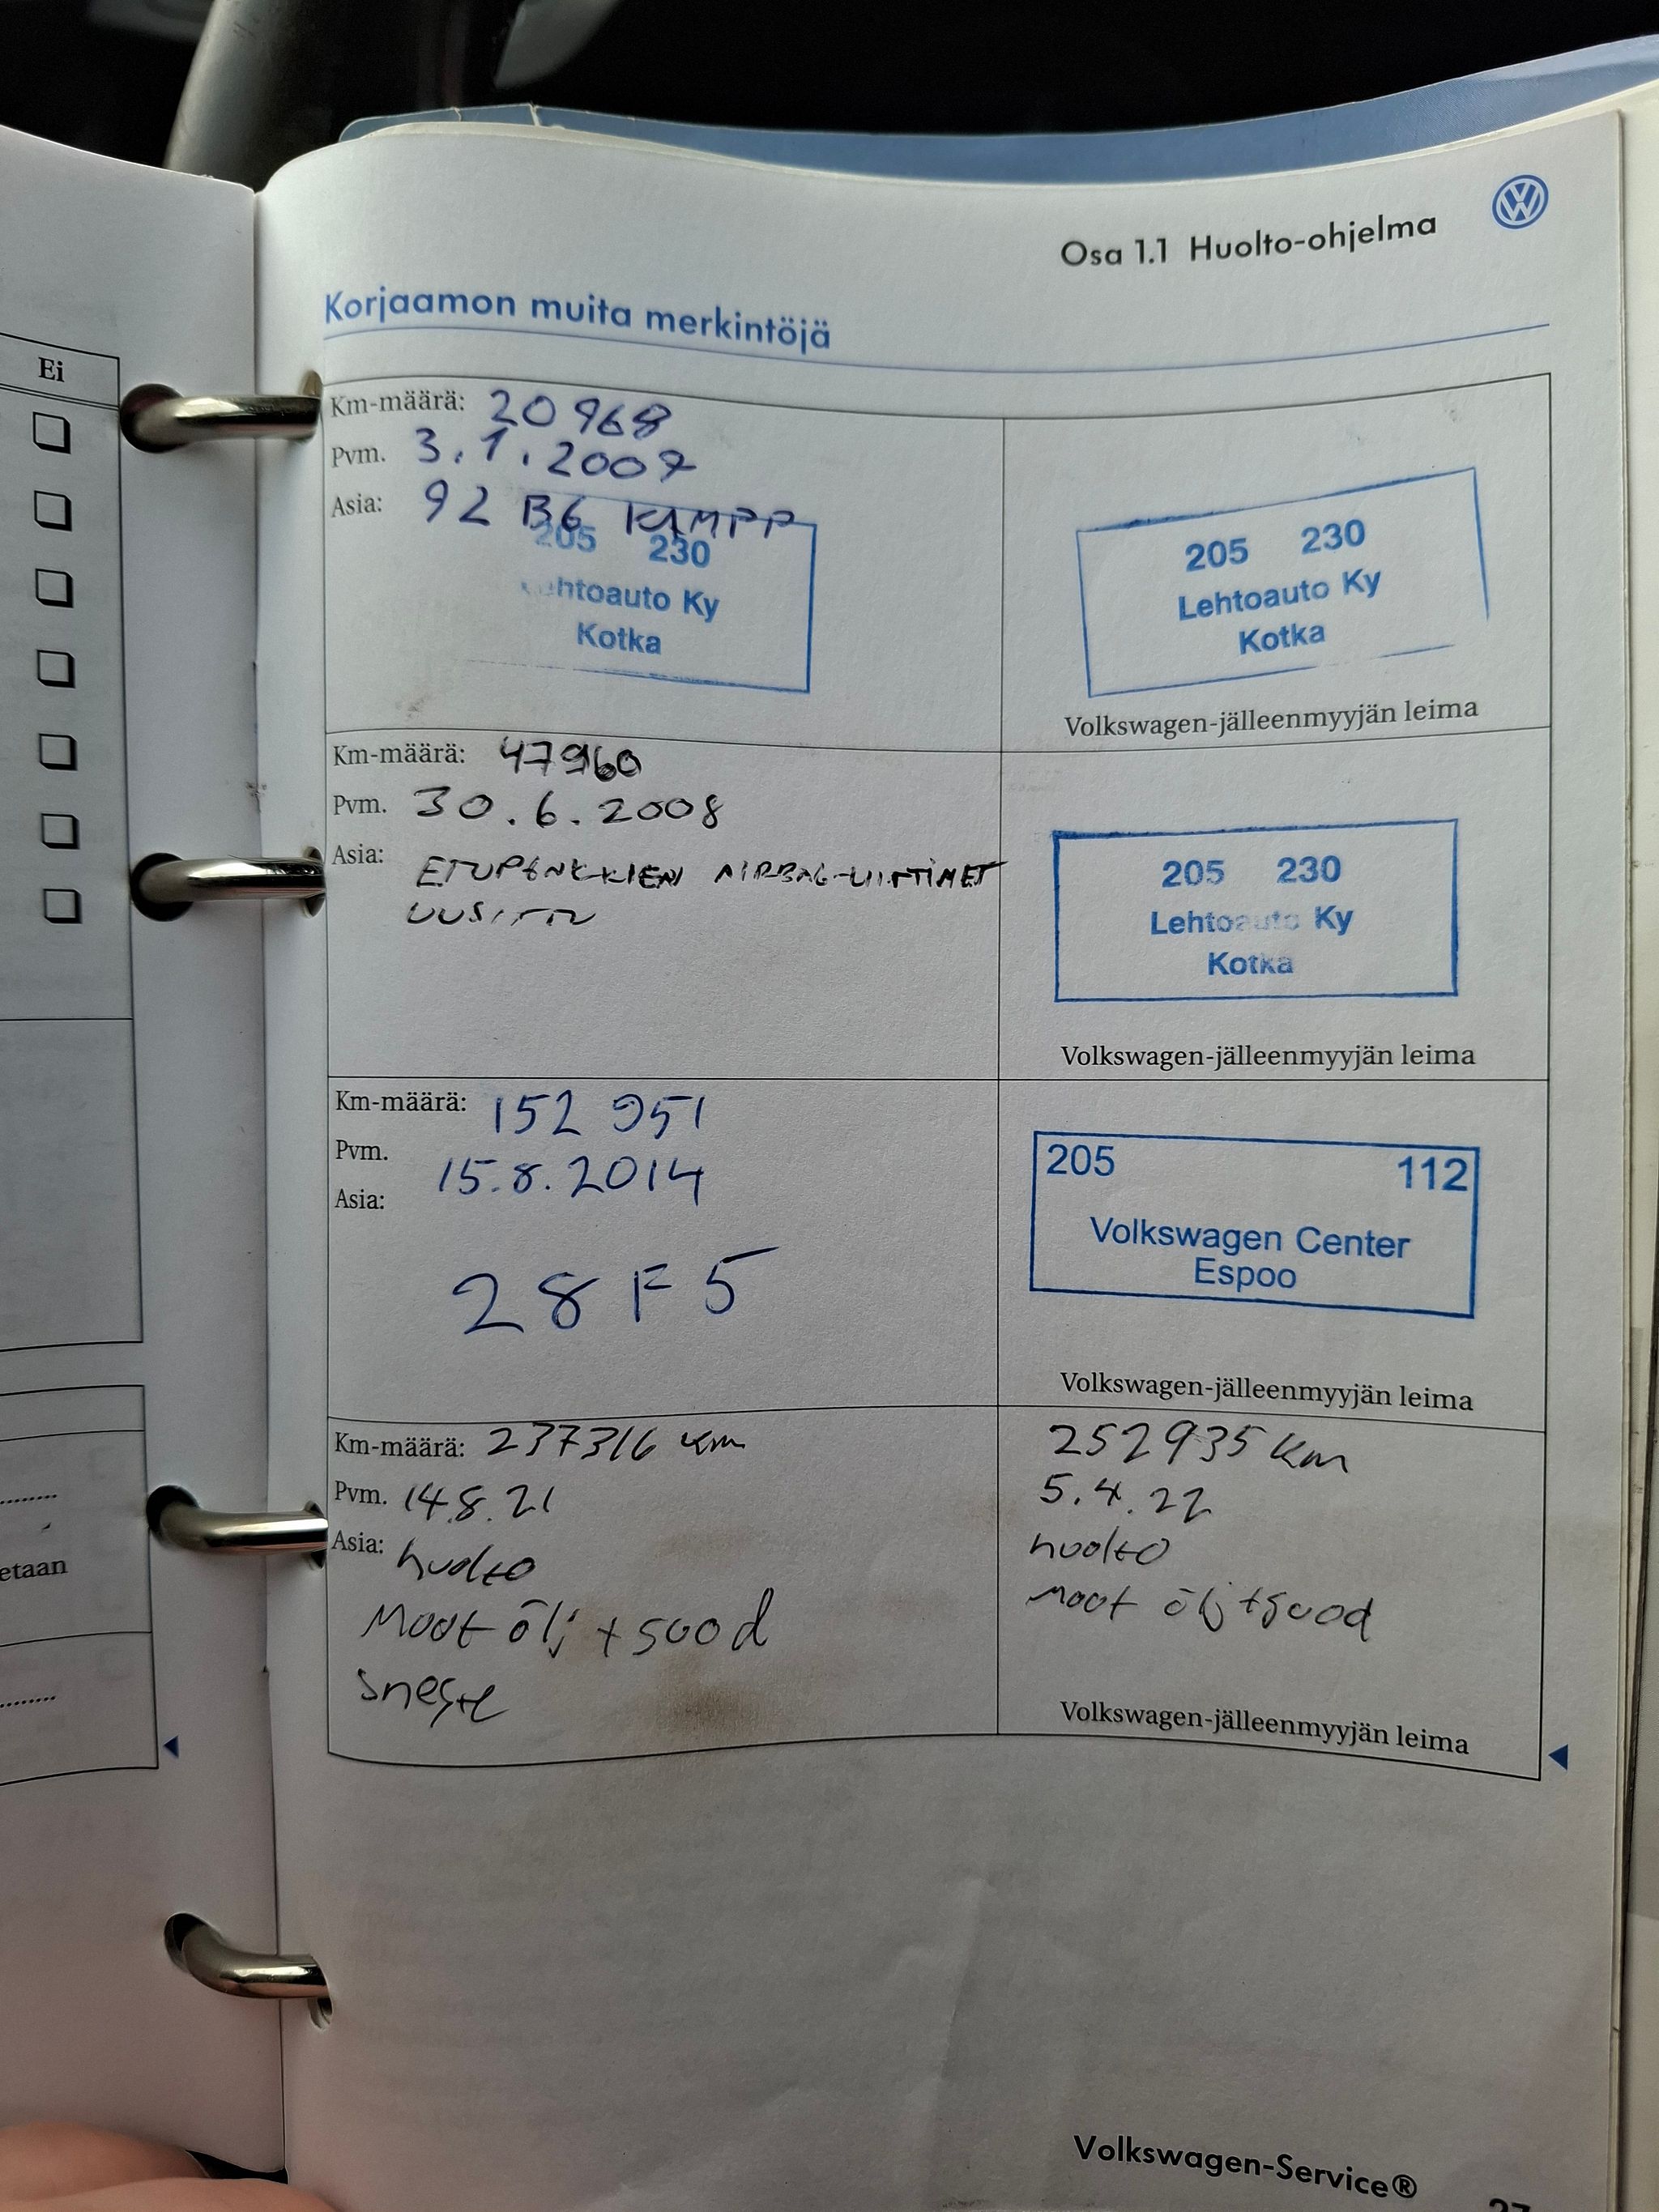 Ei
etaan
Osa 1.1 Huolto-ohjelma
Korjaamon muita merkintöjä
Km-määrä: 20 968
Pvm. 3.1.2007
Asia: 92 B6 KAMPP
205 230
Lehtoauto Ky
Kotka
205 230
Lehtoauto Ky
Kotka
Volkswagen-jälleenmyyjän leima
Km-määrä: 47960
Pvm. 30.6.2008
Asia: ETUPENKKIEN AIRBAG-LIITTIMET
UUSITTU
205 230
Lehtoauto Ky
Kotka
Volkswagen-jälleenmyyjän leima
Km-määrä: 152 951
Pvm. 15.8.2014
Asia:
28F5
205 112
Volkswagen Center
Espoo
Volkswagen-jälleenmyyjän leima
Km-määrä: 237316 km
Pvm. 14.8.21
Asia: huolto
Moot ölj + suod
252935 km
5.4.22
huolto
moot ölj + suod
Volkswagen-jälleenmyyjän leima
Volkswagen-Service®